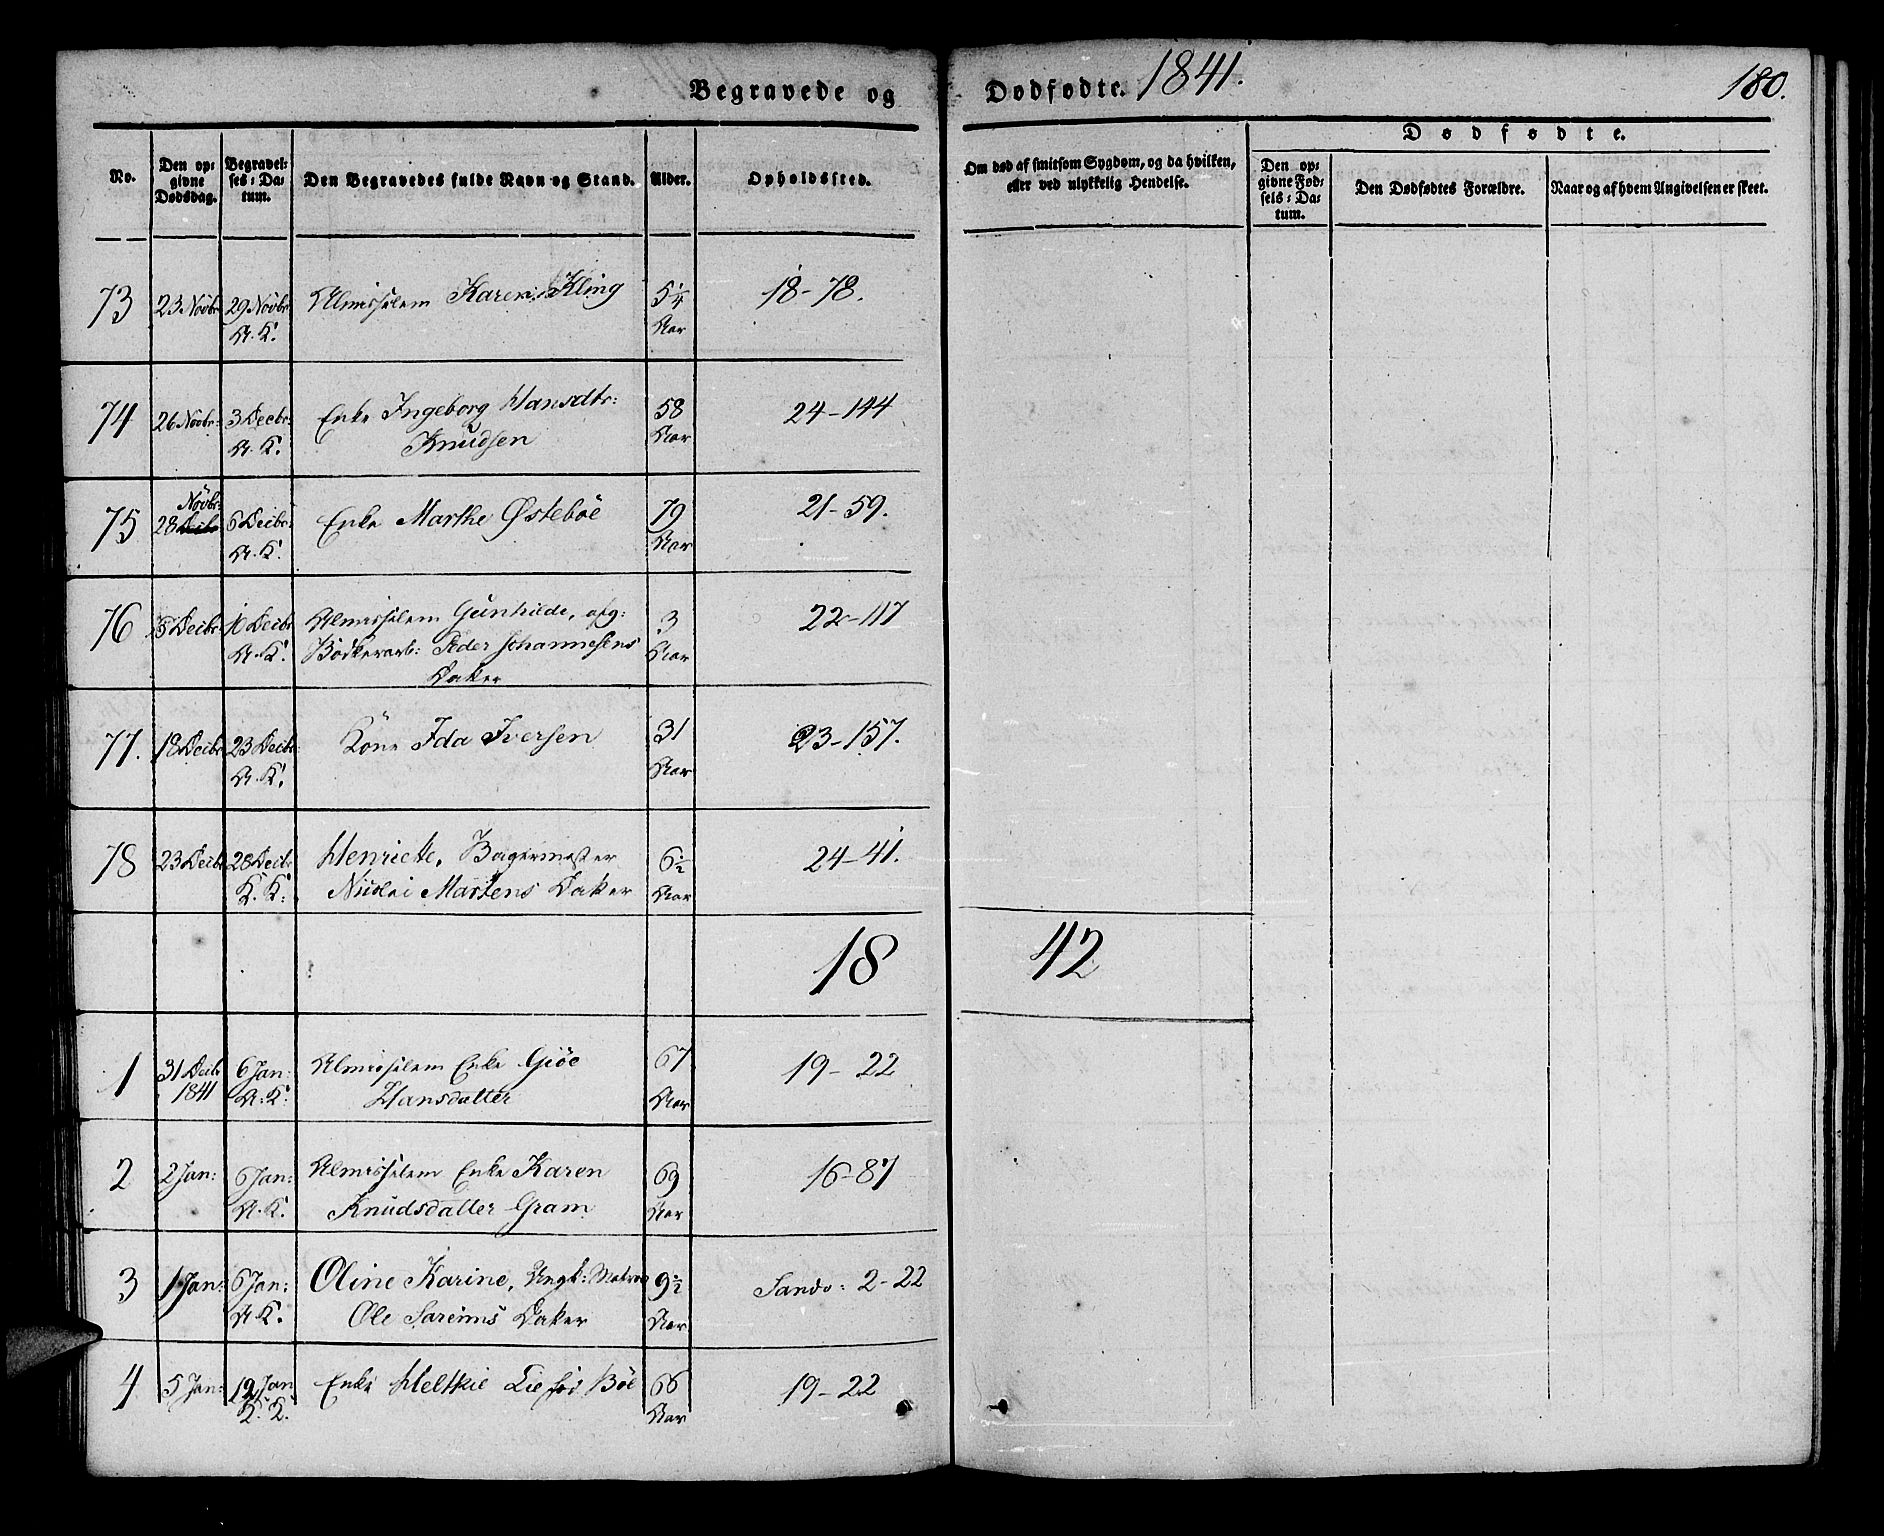 Begravede og Dødfødte. 1841. 180.
Dødfødte.
No.
Den op-
givne
Dødsdag.
Begravel-
ses-Da-
tum.
Den Begravedes fulde Navn og Stand.
Alder.
Opholdssted.
Om død af smitsom Sygdom, og da hvilken,
eller ved ulykkelig Hendelse.
Den op-
givne Fød-
sels-Da-
tum.
Den Dødfødtes Forældre.
Naar og af hvem Angivelsen er skeet.
73 23 Novbr 29 Novbr Almisselem Karen Kling 5¼ 18-78.
A. K. Aar
74 26 Novbr: 3 Decbr: Enke Ingeborg Hansdtr: 58 24-144
A. K. Knudsen Aar
Novbr:
75 28 Decbr 6 Decbr: Enke Marthe Østebøe 79 21-59.
A. K. Aar
76 5 Decbr: 10 Decbr Almisselem Gunhilde, afg: 3 22-117
A. K. Bødkerarb: Peder Johannesens Aar
Datter
77. 18 Decbr 23 Decbr: Kone Ida Iversen 31 23-157.
A. K. Aar
78 23 Decbr 28 Decbr Henriette, Bagermester 6½ 24-41.
K. K. Nicolai Martens Datter Aar
18 42
1 31 Decbr 6 Jan: Almisselem Enke Giöe 67 19-22
1841 A. K. Hansdatter Aar
2 2 Jan: 6 Jan: Almisselem Enke Karen 69 16-87
A. K. Knudsdatter Gram Aar
3 1 Jan: 6 Jan: Oline Karine, Ungk: Matros 9½ Sandv: 2-22
A. K. Ole Datter Aar
4 5 Jan: 12 Jan Enke Lie fød Bøe 66 19-22
K. K. Aar